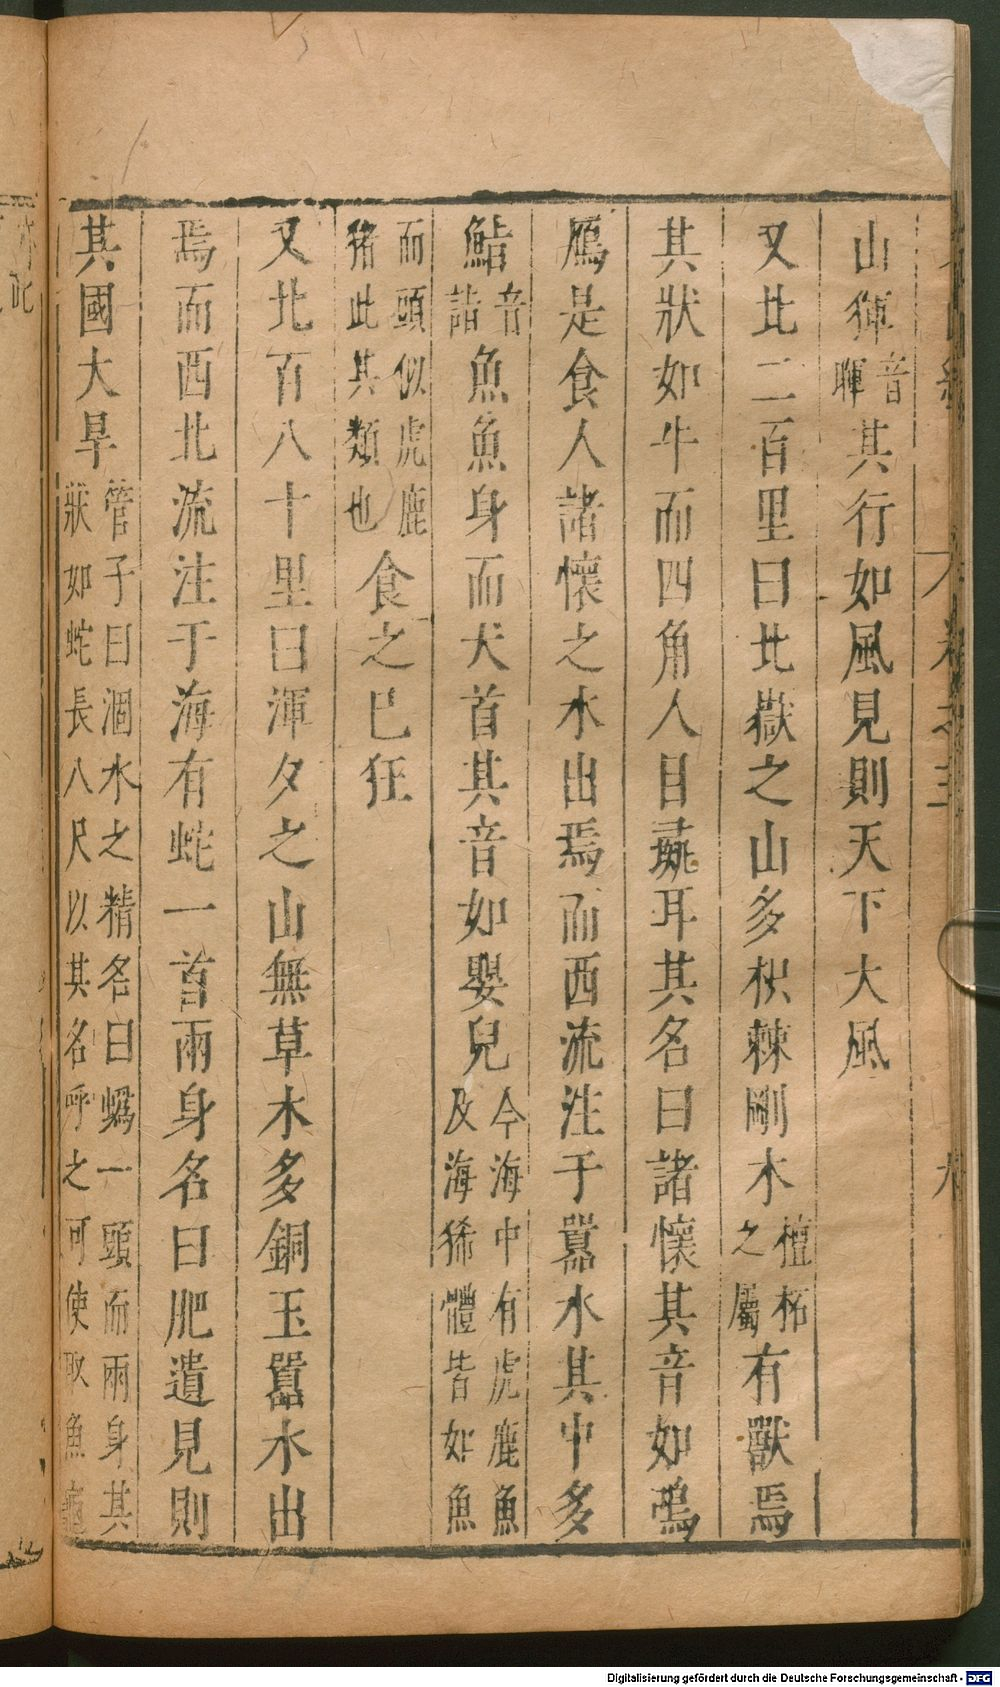 山𤟤音暉其行如風見則天下大風
又北二百里曰北嶽之山多枳棘剛木檀柘之屬有獸焉
其狀如牛而四角人目彘耳其名曰諸懷其音如鳴
鴈是食人諸懷之水出焉而西流注于囂水其中多
鮨音詣魚魚身而犬首其音如嬰兒今海中有虎鹿魚及海狶體皆如魚
而頭似虎鹿猪此其類也食之巳狂
又北百八十里曰渾夕之山無草木多銅玉囂水出
焉而西北流注于海有蛇一首兩身名曰肥遺見則
其國大旱管子曰涸水之精名曰蟡一頭而兩身其狀如蛇長八尺以其名呼之可使取魚龜
Digitalisierung gefördert durch die Deutsche Forschungsgemeinschaft - DFG